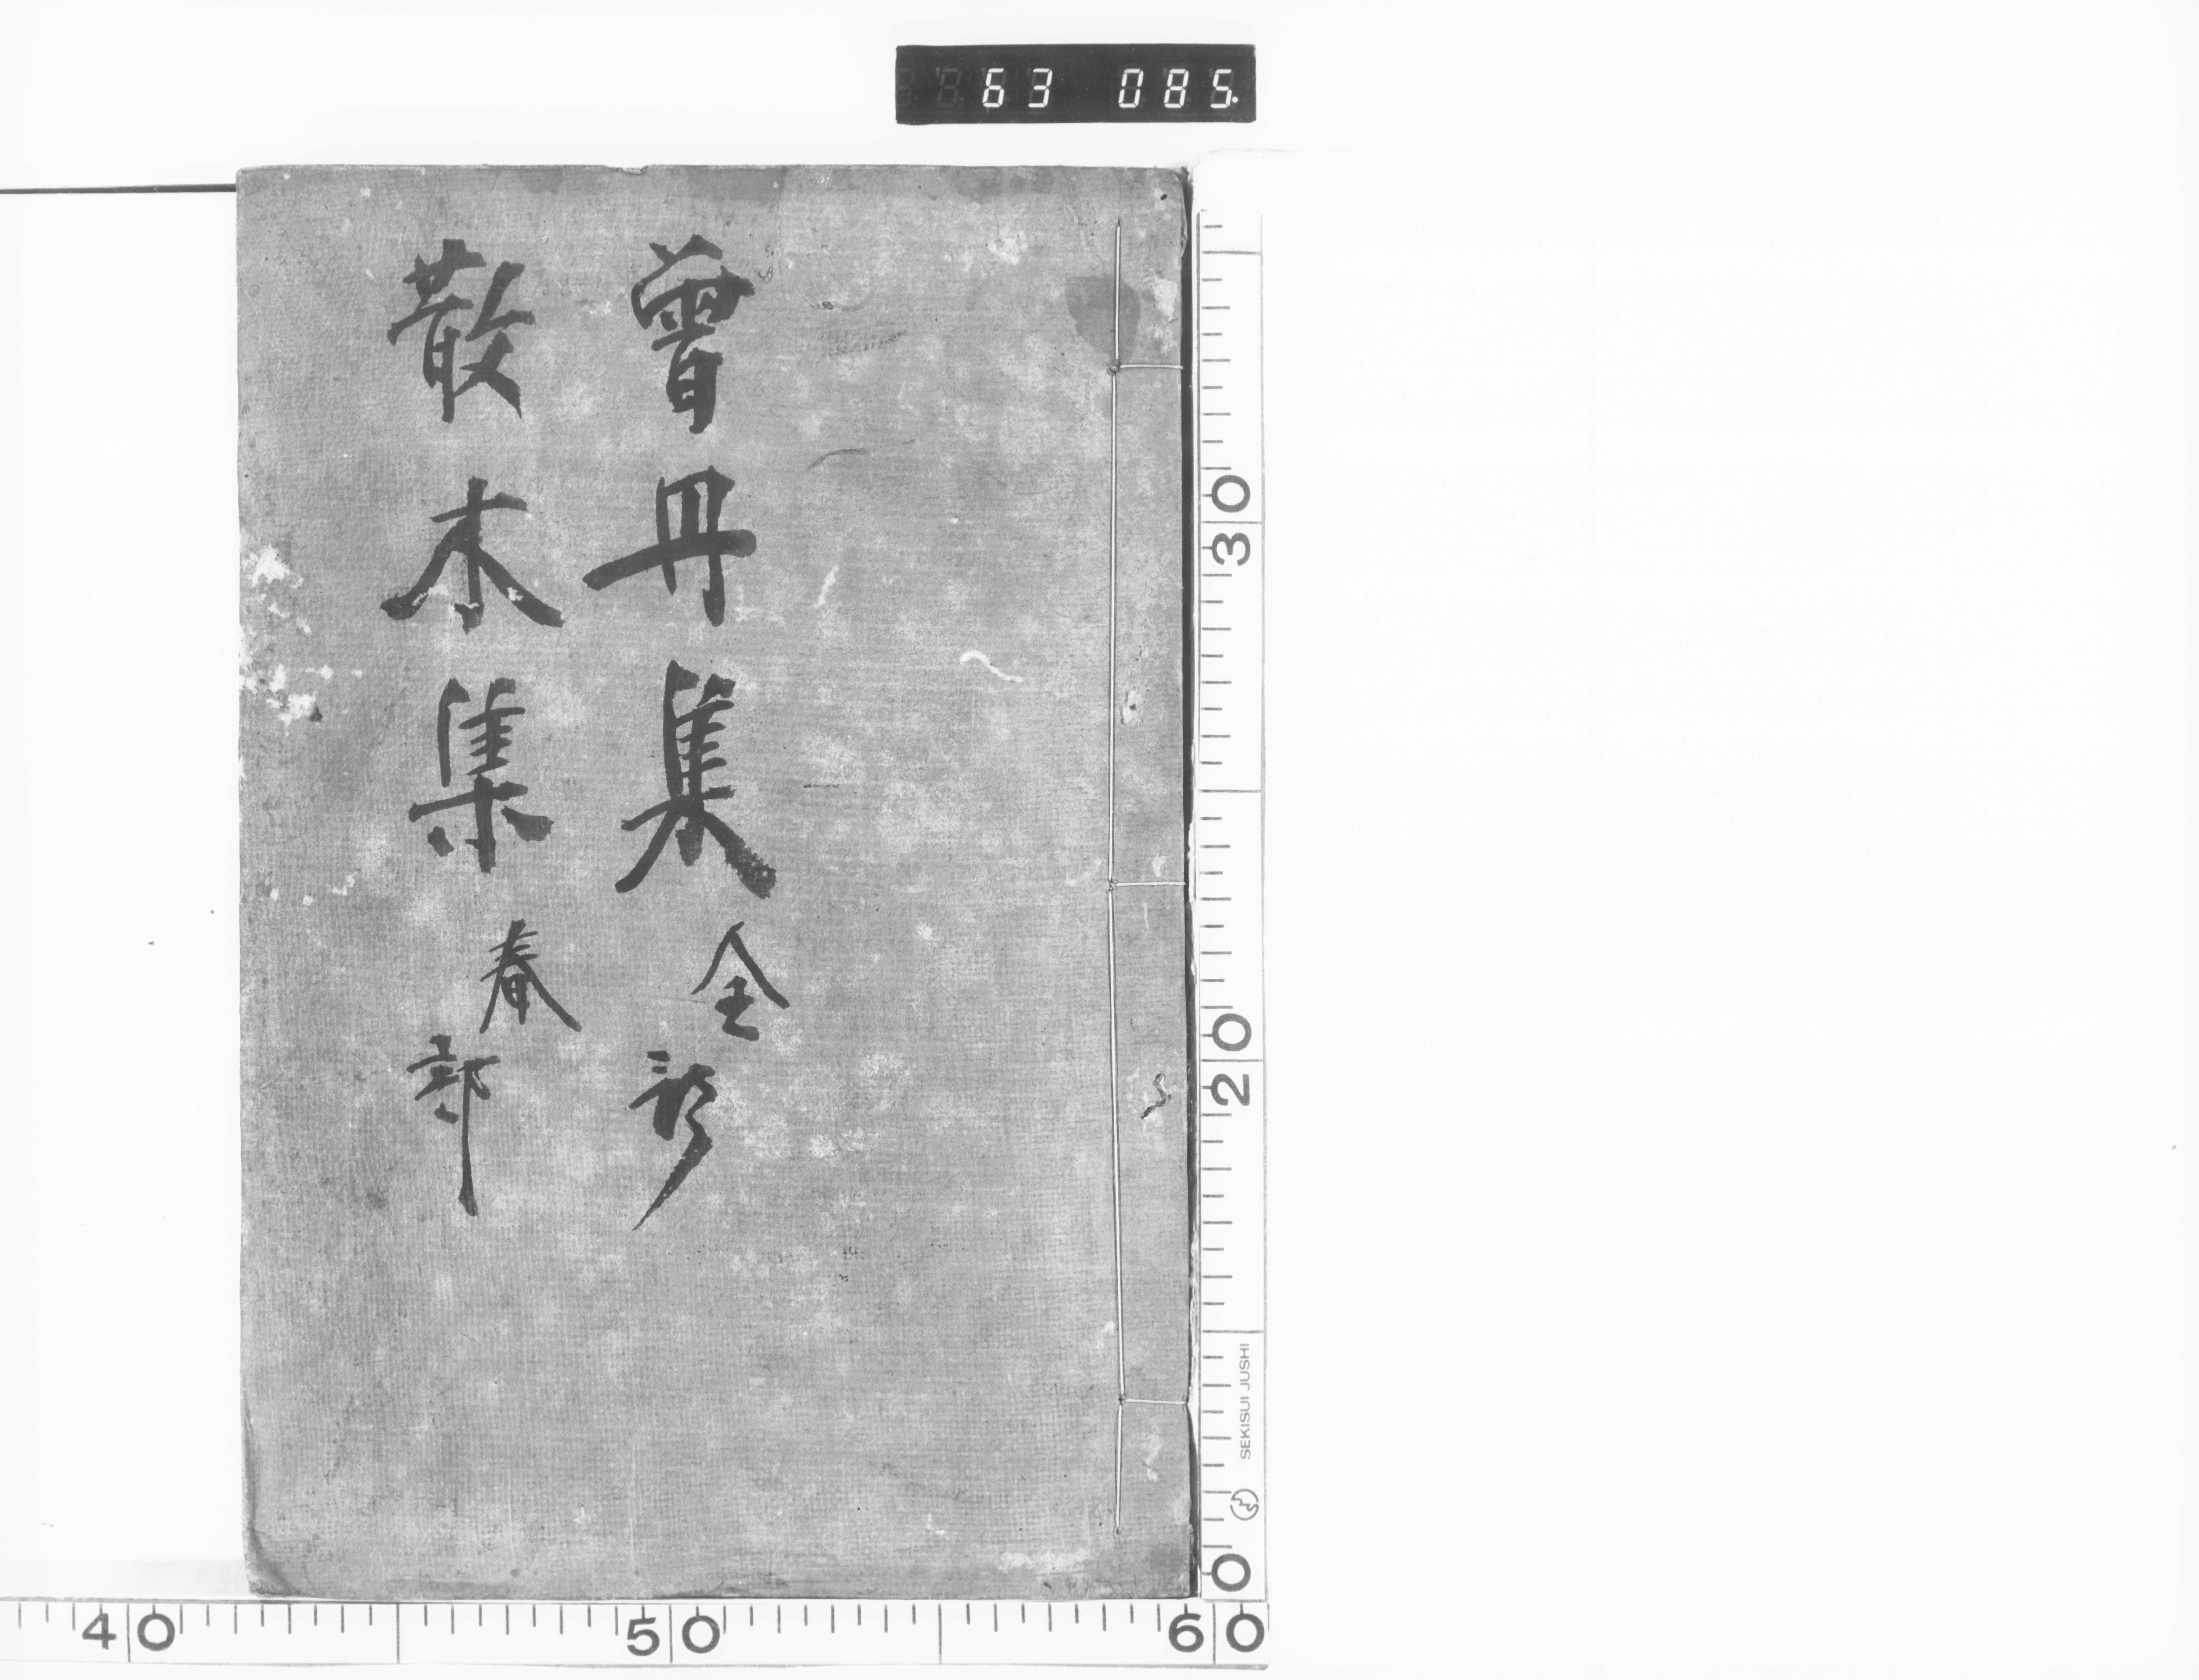 63 085.
曾丹集 全部
散木集 春部
30
20
SEKISUI JUSHI
0
40 50 60